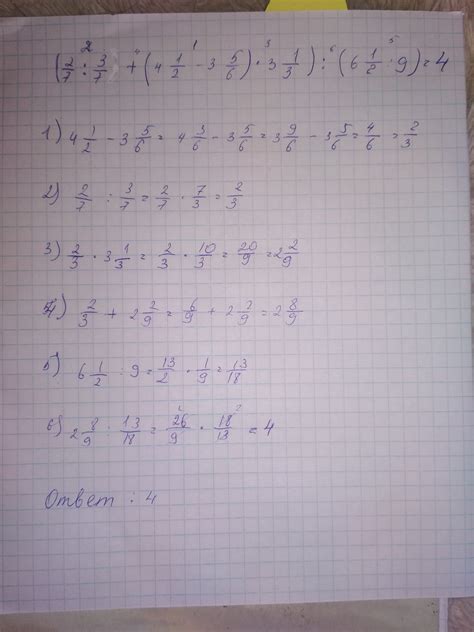 2 4 1 3 6 5
(2/7 : 3/7) + (4 1/2 - 3 5/6) · 3 1/3) : (6 1/2 : 9) = 4
1) 4 1/2 - 3 5/6 = 4 3/6 - 3 5/6 = 3 9/6 - 3 5/6 = 4/6 = 2/3
2) 2/7 : 3/7 = 2/7 · 7/3 = 2/3
3) 2/3 · 3 1/3 = 2/3 · 10/3 = 20/9 = 2 2/9
4) 2/3 + 2 2/9 = 6/9 + 2 2/9 = 2 8/9
5) 6 1/2 : 9 = 13/2 · 1/9 = 13/18
6) 2 8/9 : 13/18 = 26/9 · 18/13 = 4
Ответ : 4